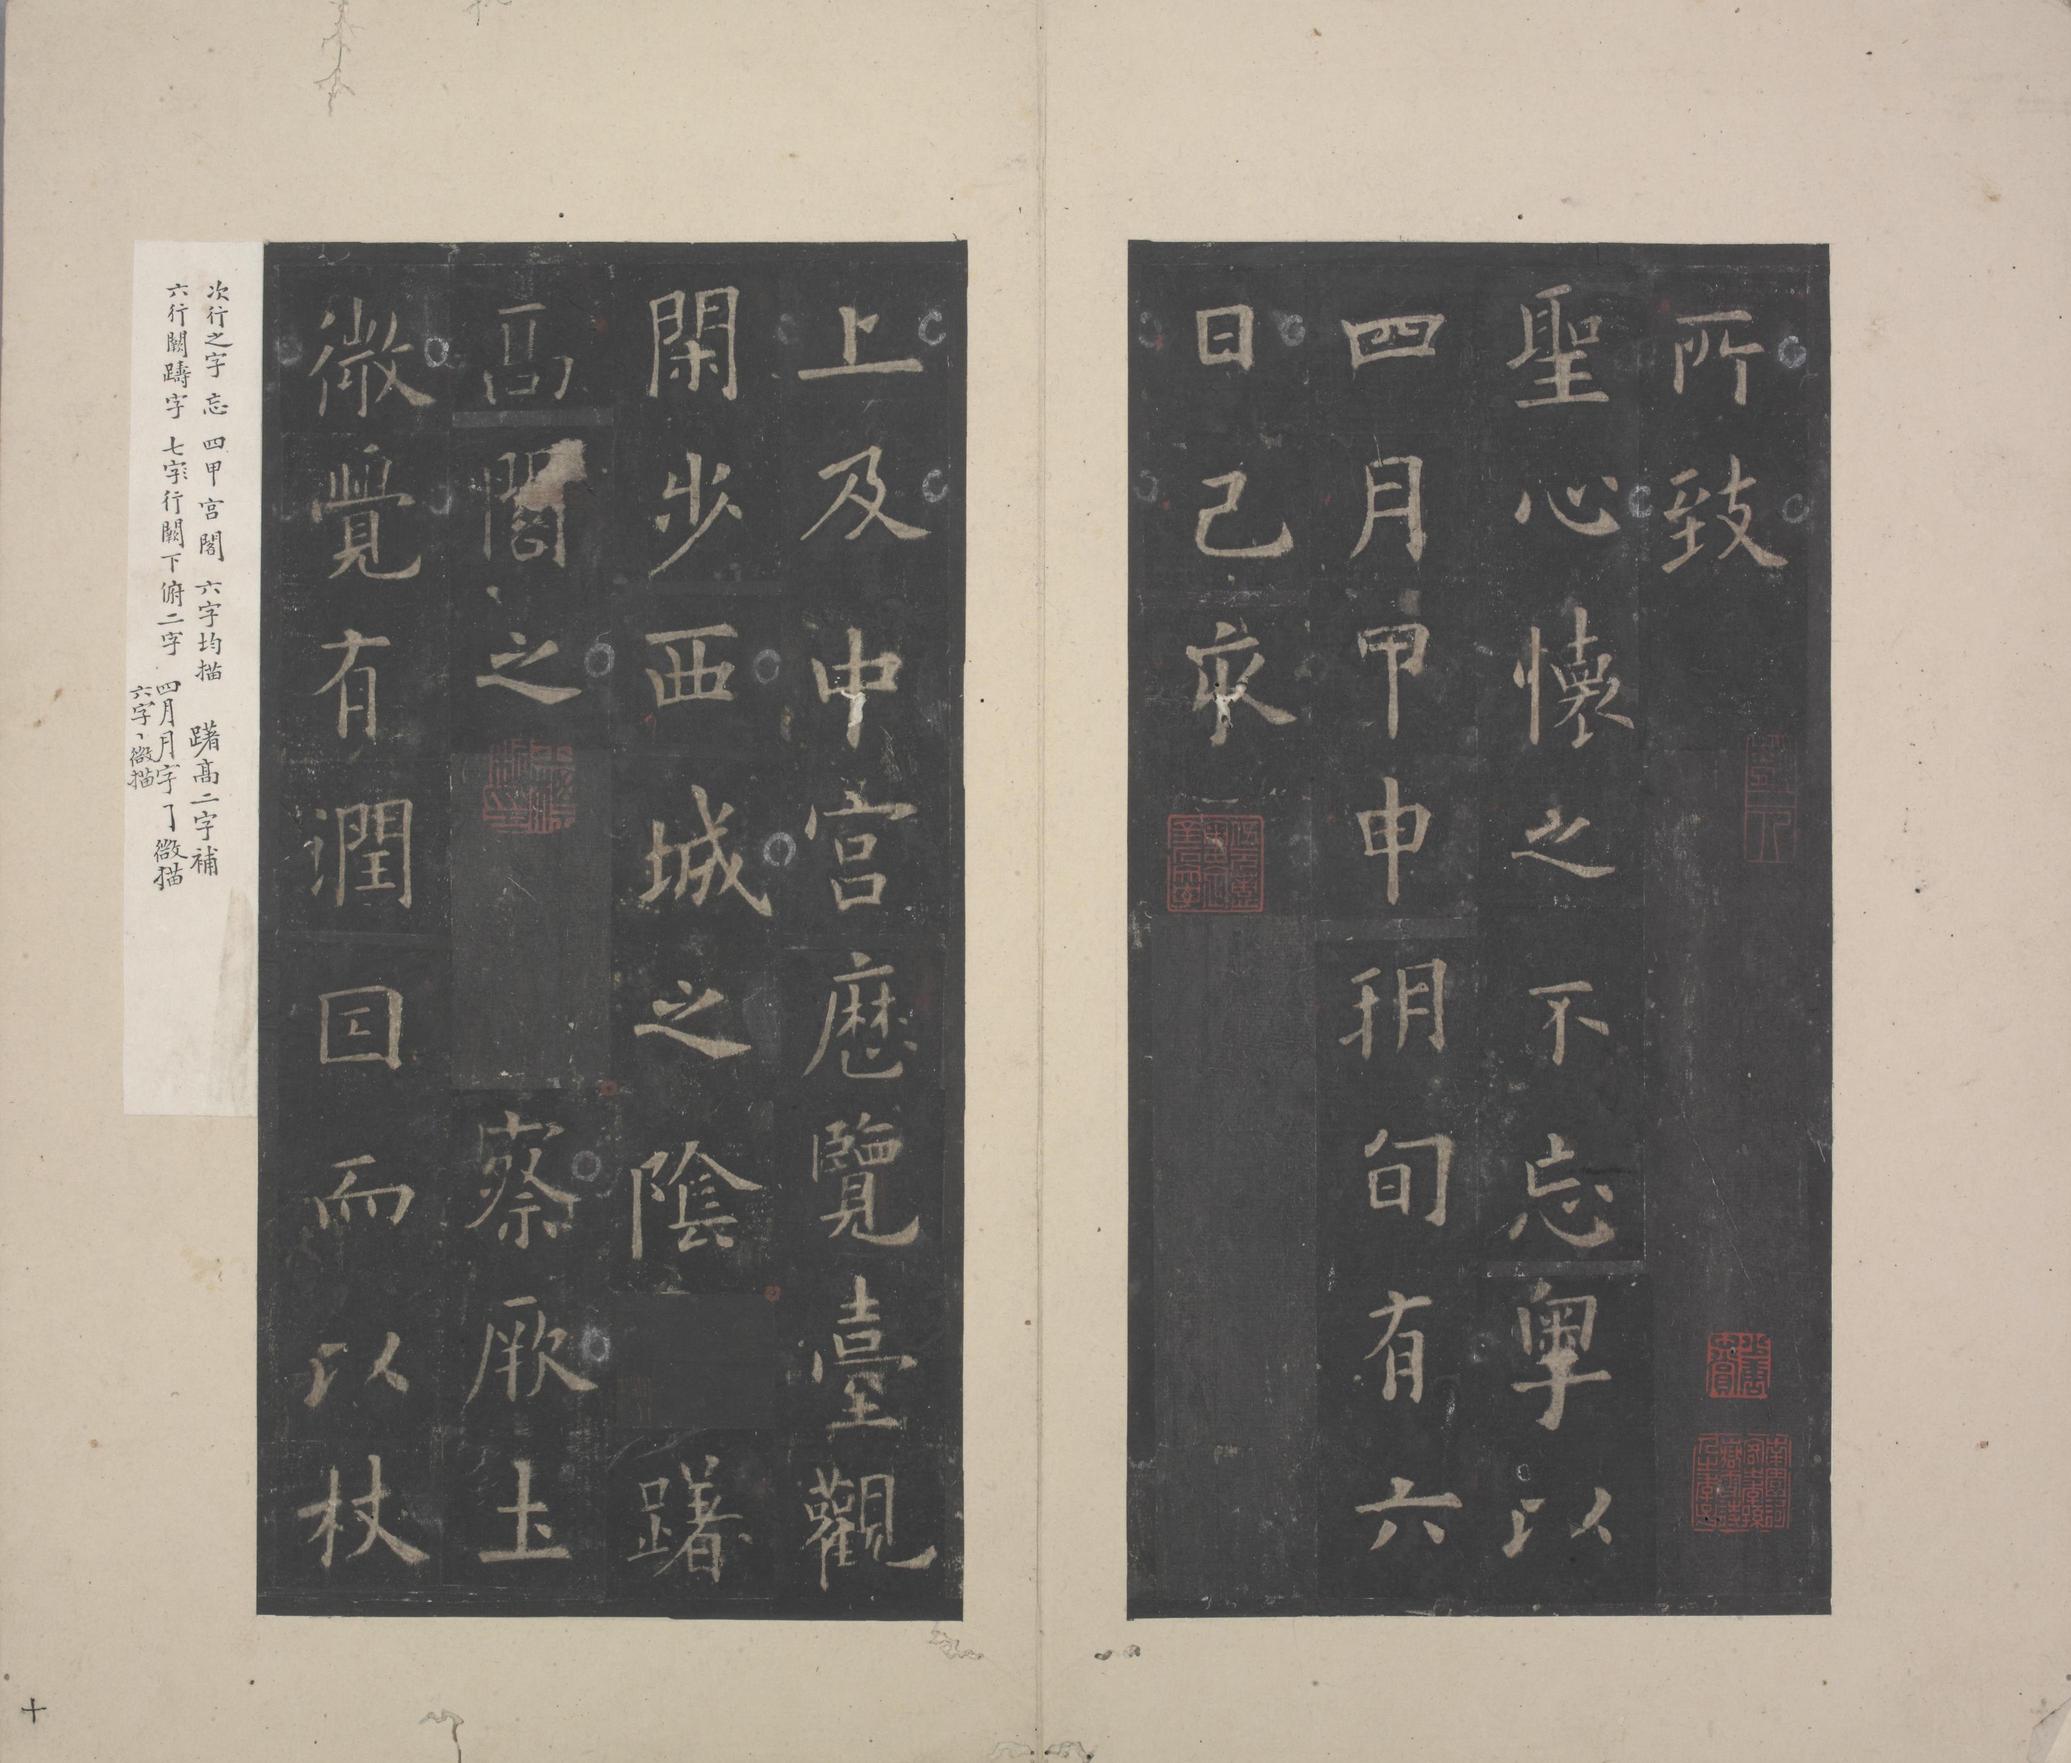 所致
聖心懷之不忘粤以
四月甲申朔旬有六
日己亥
上及中宮歷覽臺觀
閑步西城之陰躇
高閣之察厥土
微覺有潤因而以杖
次行之字忘 四甲宮閣 六字均描 躇高二字補
六行闕躊字 七字行闕下俯二字 四月月字㇆微描
六字丶微描
十